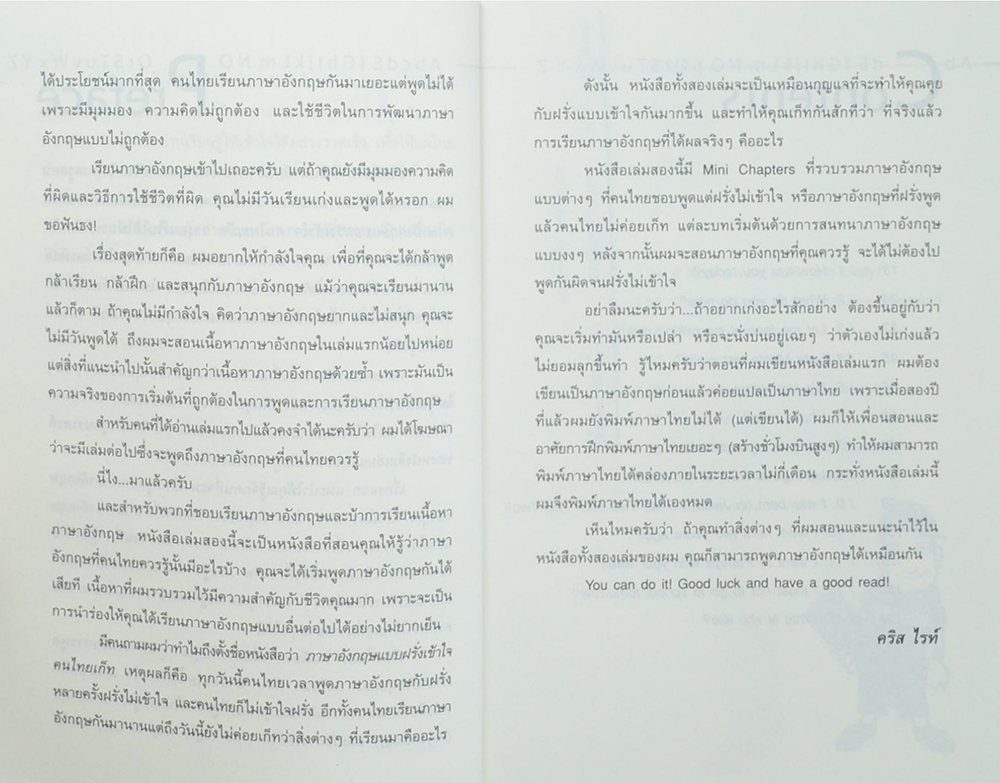 ได้ประโยชน์มากที่สุด คนไทยเรียนภาษาอังกฤษกันมาเยอะแต่พูดไม่ได้
เพราะมีมุมมอง ความคิดไม่ถูกต้อง และใช้ชีวิตในการพัฒนาภาษา
อังกฤษแบบไม่ถูกต้อง
เรียนภาษาอังกฤษเข้าไปเถอะครับ แต่ถ้าคุณยังมีมุมมองความคิด
ที่ผิดและวิธีการใช้ชีวิตที่ผิด คุณไม่มีวันเรียนเก่งและพูดได้หรอก ผม
ขอฟันธง!
เรื่องสุดท้ายก็คือ ผมอยากให้กำลังใจคุณ เพื่อที่คุณจะได้กล้าพูด
กล้าเรียน กล้าฝึก และสนุกกับภาษาอังกฤษ แม้ว่าคุณจะเรียนมานาน
แล้วก็ตาม ถ้าคุณไม่มีกำลังใจ คิดว่าภาษาอังกฤษยากและไม่สนุก คุณจะ
ไม่มีวันพูดได้ ถึงผมจะสอนเนื้อหาภาษาอังกฤษในเล่มแรกน้อยไปหน่อย
แต่สิ่งที่แนะนำไปนั้นสำคัญกว่าเนื้อหาภาษาอังกฤษด้วยซ้ำ เพราะมันเป็น
ความจริงของการเริ่มต้นที่ถูกต้องในการพูดและการเรียนภาษาอังกฤษ
สำหรับคนที่ได้อ่านเล่มแรกไปแล้วคงจำได้นะครับว่า ผมได้โฆษณา
ว่าจะมีเล่มต่อไปซึ่งจะพูดถึงภาษาอังกฤษที่คนไทยควรรู้
นี่ไง...มาแล้วครับ
และสำหรับพวกที่ชอบเรียนภาษาอังกฤษและบ้าการเรียนเนื้อหา
ภาษาอังกฤษ หนังสือเล่มสองนี้จะเป็นหนังสือที่สอนคุณให้รู้ว่าภาษา
อังกฤษที่คนไทยควรรู้นั้นมีอะไรบ้าง คุณจะได้เริ่มพูดภาษาอังกฤษกันได้
เสียที เนื้อหาที่ผมรวบรวมไว้มีความสำคัญกับชีวิตคุณมาก เพราะจะเป็น
การนำร่องให้คุณได้เรียนภาษาอังกฤษแบบอื่นต่อไปได้อย่างไม่ยากเย็น
มีคนถามผมว่าทำไมถึงตั้งชื่อหนังสือว่า ภาษาอังกฤษแบบฝรั่งเข้าใจ
คนไทยเก็ท เหตุผลก็คือ ทุกวันนี้คนไทยเวลาพูดภาษาอังกฤษกับฝรั่ง
หลายครั้งฝรั่งไม่เข้าใจ และคนไทยก็ไม่เข้าใจฝรั่ง อีกทั้งคนไทยเรียนภาษา
อังกฤษกันมานานแต่ถึงวันนี้ยังไม่ค่อยเก็ทว่าสิ่งต่างๆ ที่เรียนมาคืออะไร
ดังนั้น หนังสือทั้งสองเล่มจะเป็นเหมือนกุญแจที่จะทำให้คุณคุย
กับฝรั่งแบบเข้าใจกันมากขึ้น และทำให้คุณเก็ทกันสักทีว่า ที่จริงแล้ว
การเรียนภาษาอังกฤษที่ได้ผลจริงๆ คืออะไร
หนังสือเล่มสองนี้มี Mini Chapters ที่รวบรวมภาษาอังกฤษ
แบบต่างๆ ที่คนไทยชอบพูดแต่ฝรั่งไม่เข้าใจ หรือภาษาอังกฤษที่ฝรั่งพูด
แล้วคนไทยไม่ค่อยเก็ท แต่ละบทเริ่มต้นด้วยการสนทนาภาษาอังกฤษ
แบบงงๆ หลังจากนั้นผมจะสอนภาษาอังกฤษที่คุณควรรู้ จะได้ไม่ต้องไป
พูดกันผิดจนฝรั่งไม่เข้าใจ
อย่าลืมนะครับว่า...ถ้าอยากเก่งอะไรสักอย่าง ต้องขึ้นอยู่กับว่า
คุณจะเริ่มทำมันหรือเปล่า หรือจะนั่งบ่นอยู่เฉยๆ ว่าตัวเองไม่เก่งแล้ว
ไม่ยอมลุกขึ้นทำ รู้ไหมครับว่าตอนที่ผมเขียนหนังสือเล่มแรก ผมต้อง
เขียนเป็นภาษาอังกฤษก่อนแล้วค่อยแปลเป็นภาษาไทย เพราะเมื่อสองปี
ที่แล้วผมยังพิมพ์ภาษาไทยไม่ได้ (แต่เขียนได้) ผมก็ให้เพื่อนสอนและ
อาศัยการฝึกพิมพ์ภาษาไทยเยอะๆ (สร้างชั่วโมงบินสูงๆ) ทำให้ผมสามารถ
พิมพ์ภาษาไทยได้คล่องภายในระยะเวลาไม่กี่เดือน กระทั่งหนังสือเล่มนี้
ผมจึงพิมพ์ภาษาไทยได้เองหมด
เห็นไหมครับว่า ถ้าคุณทำสิ่งต่างๆ ที่ผมสอนและแนะนำไว้ใน
หนังสือทั้งสองเล่มของผม คุณก็สามารถพูดภาษาอังกฤษได้เหมือนกัน
You can do it! Good luck and have a good read!
คริส ไรท์